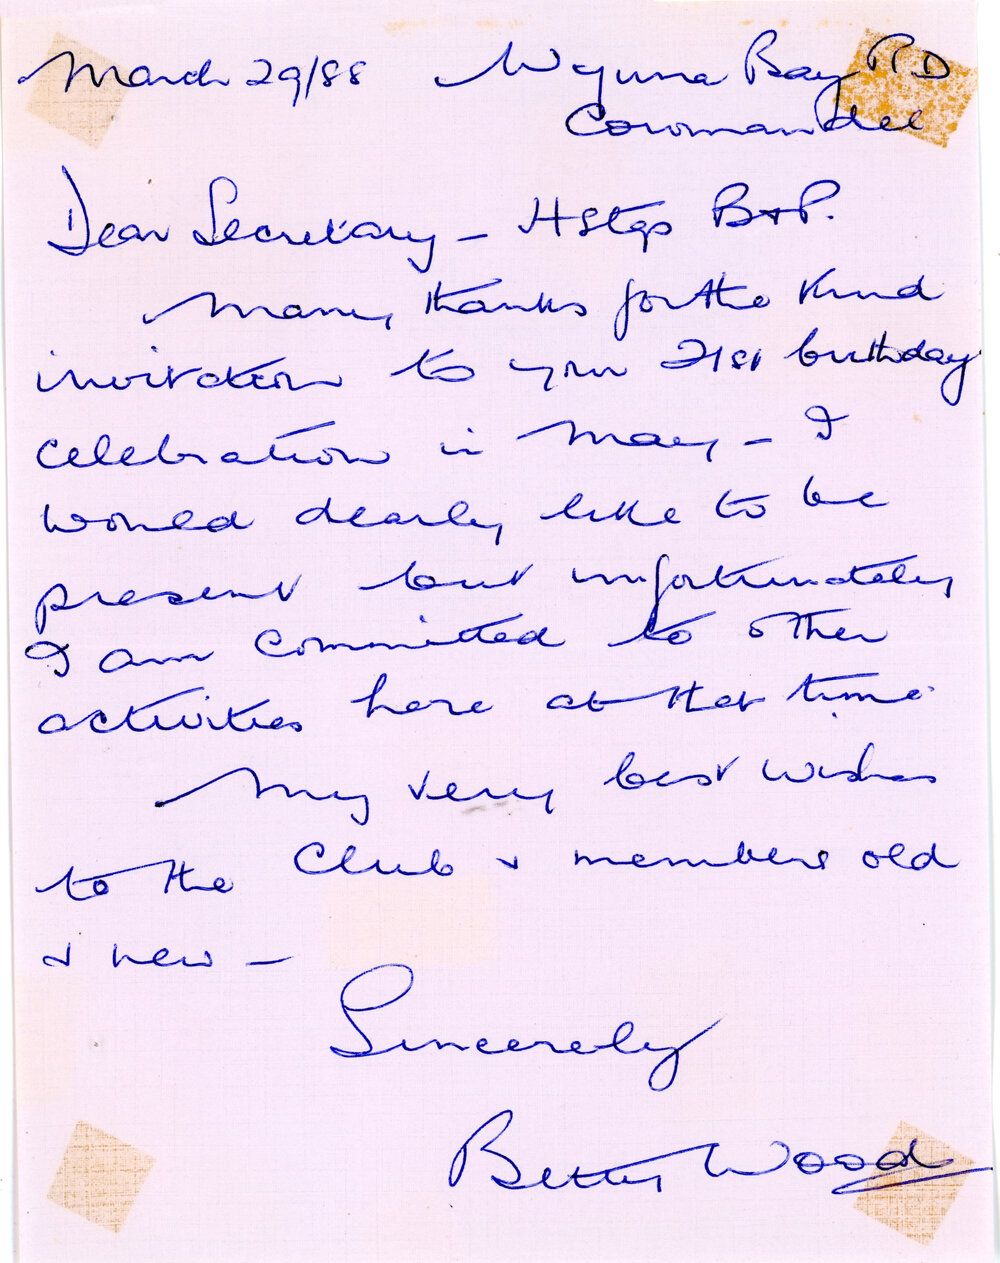 March 29/88 Wyuna Bay RD
Coromandel
Dear Secretary - HStgs B&P.
Many thanks for the kind
invitation to your 21st birthday
celebration in May - I
would dearly like to be
present but unfortunately
I am committed to other
activities here at that time.
My very best wishes
to the Club & members old
& new -
Sincerely
Betty Wood